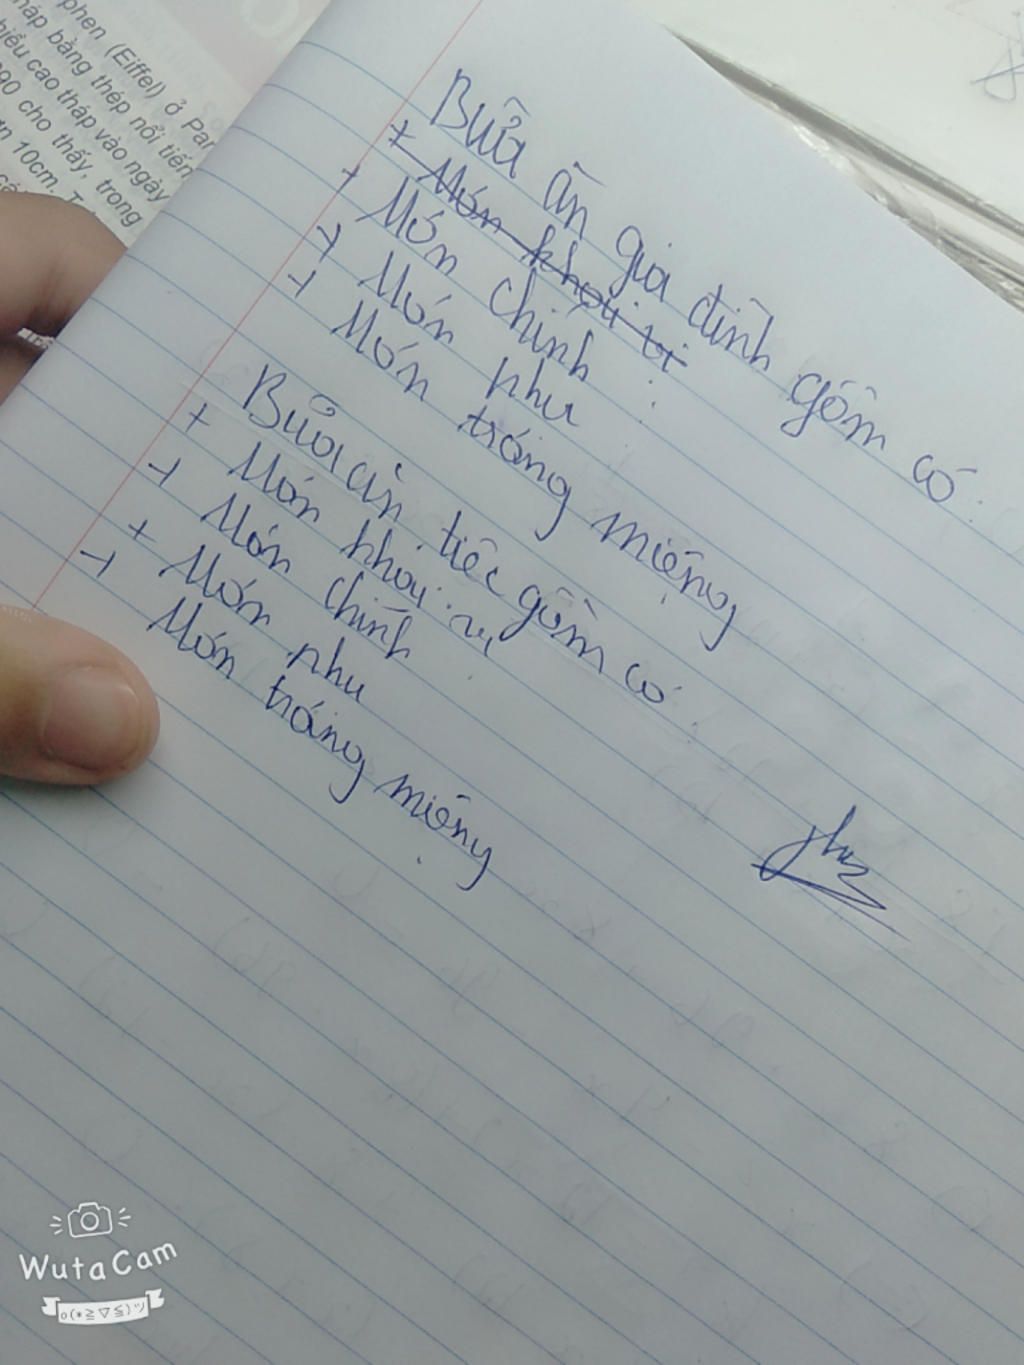 phen (Eiffel) ở Par
háp bằng thép nổi tiến
hiều cao tháp vào ngày
90 cho thấy, trong
n 10cm. T
Bữa ăn gia đình gồm có:
+ Món khai vị
+ Món chính:
+ Món phu
+ Món tráng miệng
Bữa ăn tiệc gồm có:
+ Món khai vị
+ Món chính
+ Món phu
+ Món tráng miệng
WutaCam
o(*≧▽≦)ツ